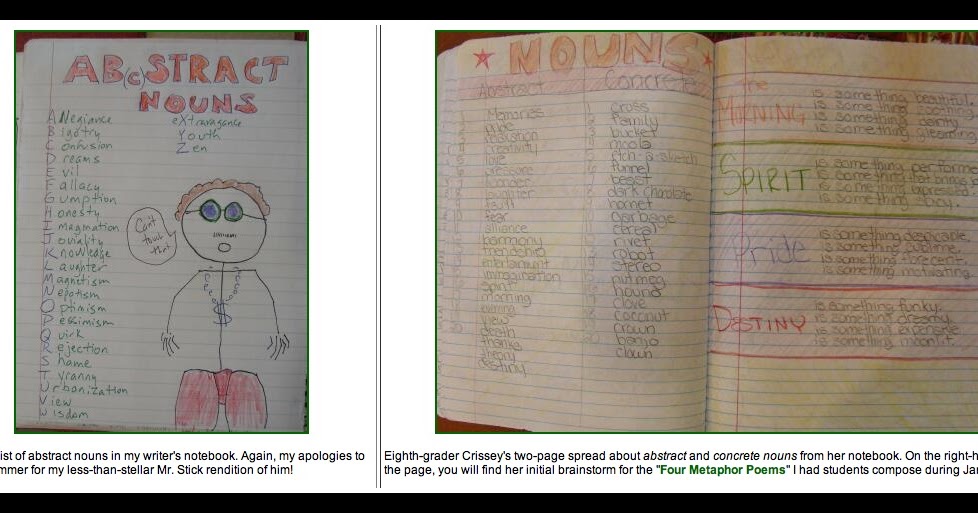 AB(c)STRACT
NOUNS
Allegiance
Bigotry
Confusion
Dreams
Evil
Fallacy
Gumption
Honesty
Imagination
Joviality
Knowledge
Laughter
Magnetism
Nepotism
Optimism
Pessimism
Quirk
Rejection
Shame
Tyranny
Urbanization
View
Wisdom
eXtravagance
Youth
Zen
Can't
touch
that!
NOUNS
Abstract
Memories
creativity
love
pressure
fear
alliance
harmony
friendship
entertainment
morning
view
death
thanks
theory
destiny
Concrete
cross
family
bucket
etch-a-sketch
funnel
beast
dark chocolate
hornet
garbage
cereal
rivet
robot
stereo
nutmeg
hound
clove
coconut
crown
banjo
clown
The
MORNING
is something beautiful
is something
is something
is something gleaming
SPIRIT
is something
is something
is something
is something
Pride
is something despicable.
is something sublime.
is something
is something motivating.
DESTINY
is something funky.
is something dreamy.
is something expensive
is something moonlit.
ist of abstract nouns in my writer's notebook. Again, my apologies to
mmer for my less-than-stellar Mr. Stick rendition of him!
Eighth-grader Crissey's two-page spread about abstract and concrete nouns from her notebook. On the right-h
the page, you will find her initial brainstorm for the "Four Metaphor Poems" I had students compose during Jan